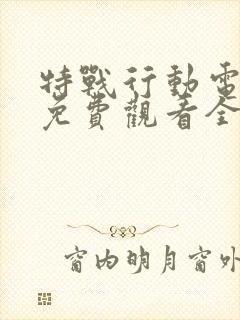 特戰行動電
免費觀看全
窗内明月窗外